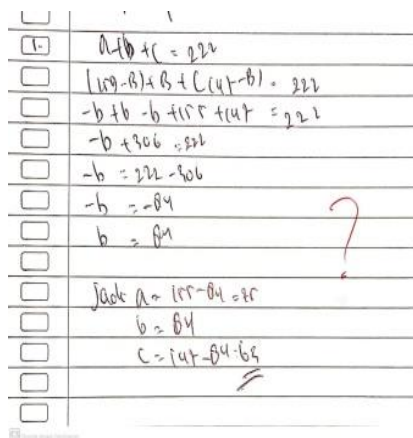 1. a+b+c = 222
(159-B)+B+C(147-B) = 222
-b+b-b+159+147 = 222
-b+306 = 222
-b = 222-306
-b = -84
b = 84
?
jadi a = 159-84 = 75
b = 84
c = 147-84 = 63